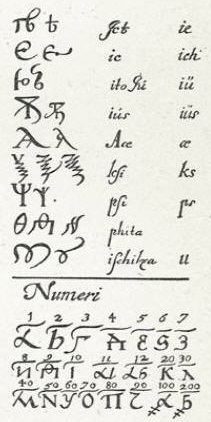 Ѣ ѣ Jet ie
Є є ie ich
Ю
Ѫ Ѫ iús iüs
Ѧ ѧ æ
Ѯ Ѯ Ѯ kſi ks
Ѱ Ѱ. pſi ps
Ѳ Ѳ Ѳ phita
iſchitza u
Numeri
1 2 3 4 5 6 7
А Б Г Д Е Ѕ З
8 9 10 11 12 20 30
И Ѳ І АІ К Л
40 50 60 70 80 90 100 200
М N У О П Ч ҂А ҂Б